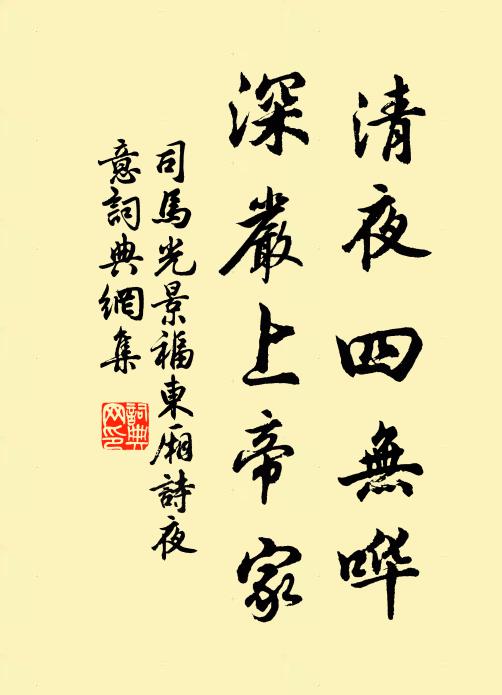 清夜四無哗
深嚴上帝家
司馬光景福東厢詩夜
意詞典網集
詞典
网印